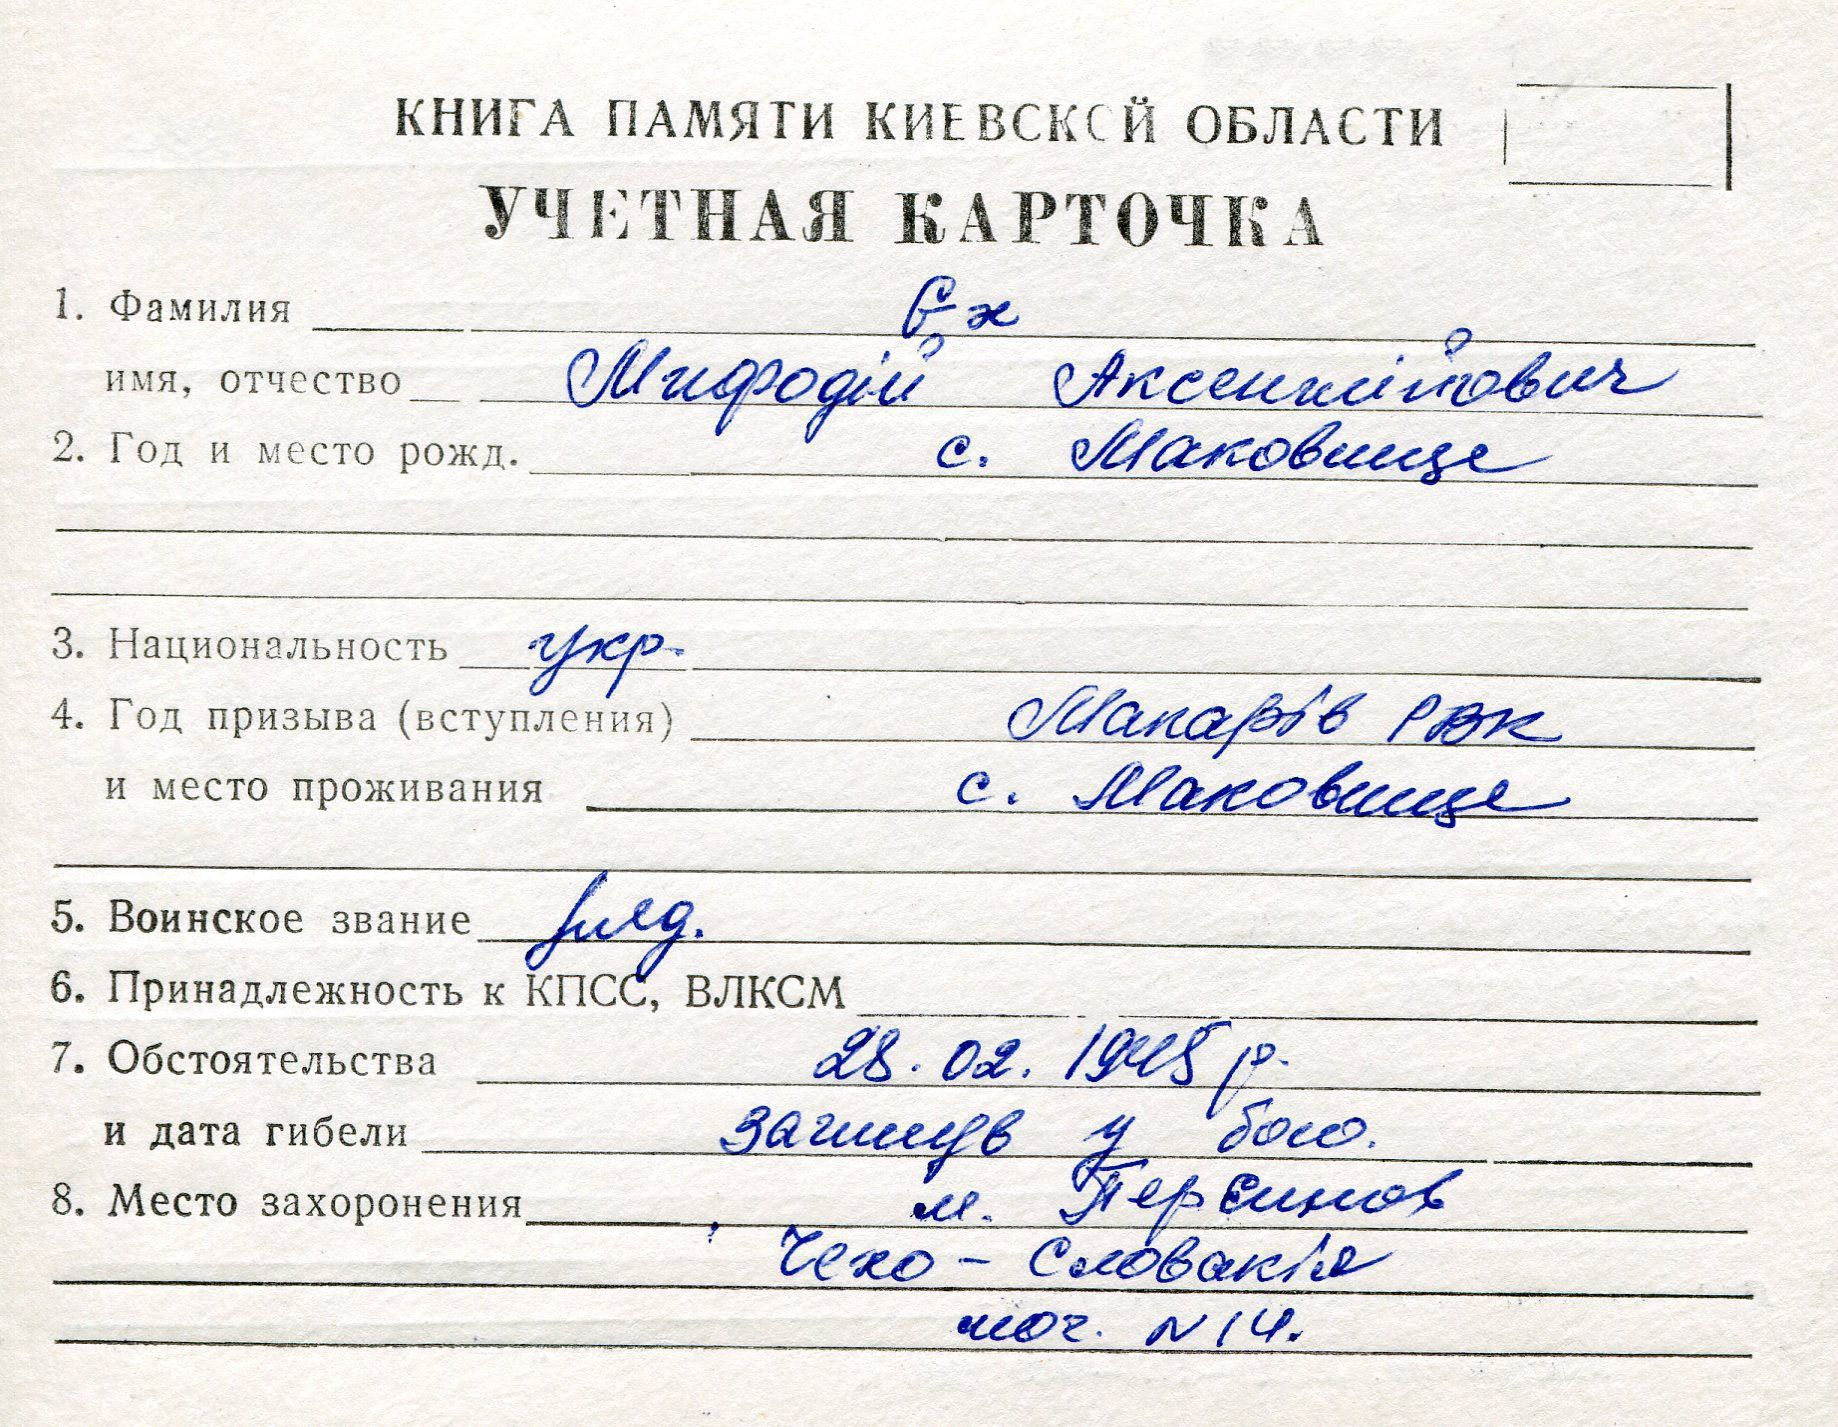 КНИГА ПАМЯТИ КИЕВСКОЙ ОБЛАСТИ
УЧЕТНАЯ КАРТОЧКА
1. Фамилия Єх
имя, отчество Мифодій Аксентійович
2. Год и место рожд. с. Маковище
3. Национальность укр.
4. Год призыва (вступления) Макарів РВК
и место проживания с. Маковище
5. Воинское звание
6. Принадлежность к КПСС, ВЛКСМ
7. Обстоятельства 28.02.1945 р.
и дата гибели загинув у бою.
8. Место захоронения м. Персинов
Чехо-Словакія
мог. N 14.